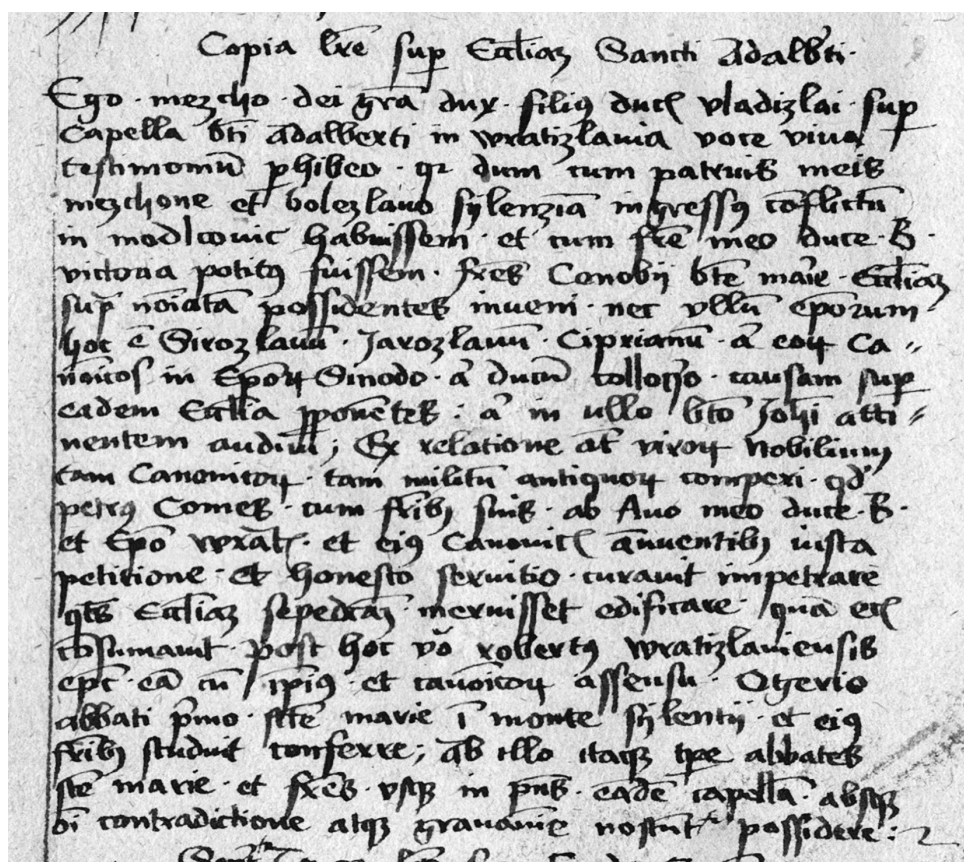 Copia lr̄e sup̱ Eccl̄iaꝫ Sancti Adalb̄ti·
Ego · mezcho · dei gr̄a dux · filiꝰ ducꝭ vladizlai · sup̱
Capella btī Adalberti in wratizlauia voce viua
testimoniū ꝑhibeo · qꝛ dum cum patruis meis
mezchone et bolezlauo sylenziā ingressꝰ cōflictū
in modlcouic habuissem · et cum fr̄e meo duce · B ·
victoria potitꝰ fuissem · fr̄es Cenobij bt̄e mar̄ie · Eccl̄iaꝫ
sup̱ noīatā possidentes inueni · nec vllū ep̄orum
hoc ē Sirozlauū · Jarozlauū · Ciprianū · a̅ eoꝝ Ca〃
nōicos in Ep̄oꝝ Sinodo · a̅ ducū colloq̄o · causam sup̱
eadem Eccl̄ia ꝓponētes · a̅ in ullo bt̄o Joh̄i atti〃
nentem audiui; Ex relatione at̄ viroꝝ Nobilium
tam Canonicoꝝ · tam militū antiquoꝝ comperi · qd̓
petrꝰ Comes · cum fr̄ibꝫ suis · ab Auo meo duce · B ·
et Ep̄o wratꝭ · et eiꝰ Canonicꝭ ānuentibꝫ iusta
petitione · et honesto seruitio · curauit impetrare
qt̄s Eccl̄iaꝫ sepedcāꝫ meruisset edificare · quā ecꝭ
cōsumauit · Post hoc v̄o robertꝰ wratizlauiensis
ep̄c · eā cū ip̄iꝰ · et canōicoꝝ assensu · Ogerio
abbati p̄mo · st̄e marie ī monte sylentij · et eiꝰ
fr̄ibꝫ studuit conferre; ab illo itaqꝫ tp̄e abbates
st̄e marie · et fr̄es · vsqꝫ in p̄ns · eādē capellā · absqꝫ
oī contradictione atqꝫ grauamīe noscunt᷑ possidere :